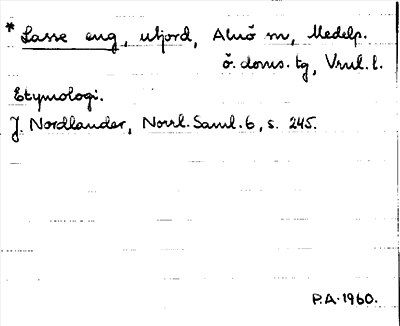 * Lasse eng, utjord, Alnö sn, Medelp.
ö. doms. tg, Vnul. l.
Etymologi.
J. Nordlander, Norrl. Saml. 6, s. 245.
P.A. 1960.